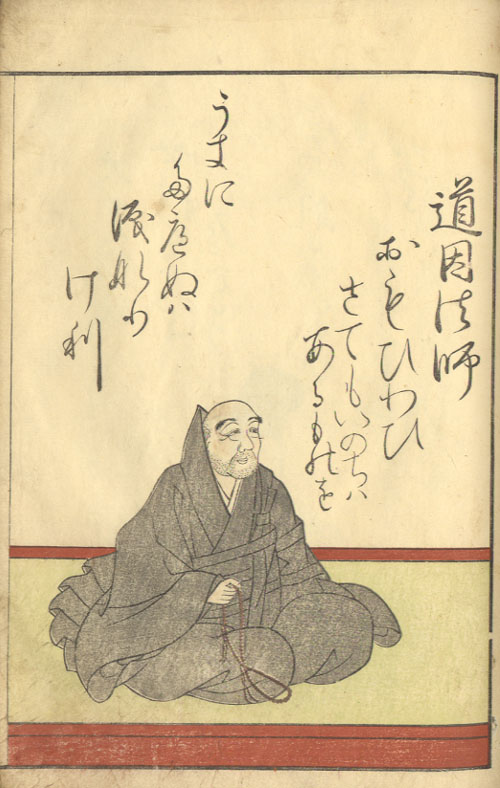 道因法師
おもひわひ
さてもいのちハ
あるものを
うきに
たへぬハ
涙なり
け利